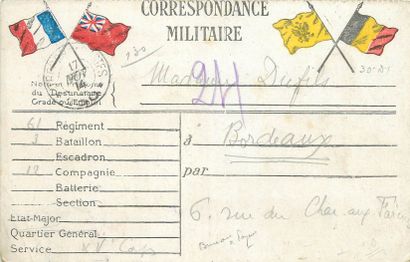 CORRESPONDANCE
MILITAIRE
17
Nom et
du Destinataire
Grade ou Emploi
Madame Dufils
241
61 Régiment
3 Bataillon
Escadron
12 Compagnie
Batterie
Section
Etat-Major
Quartier Général
Service XV Corps
à Bordeaux
par
6. rue du Chai aux Farines